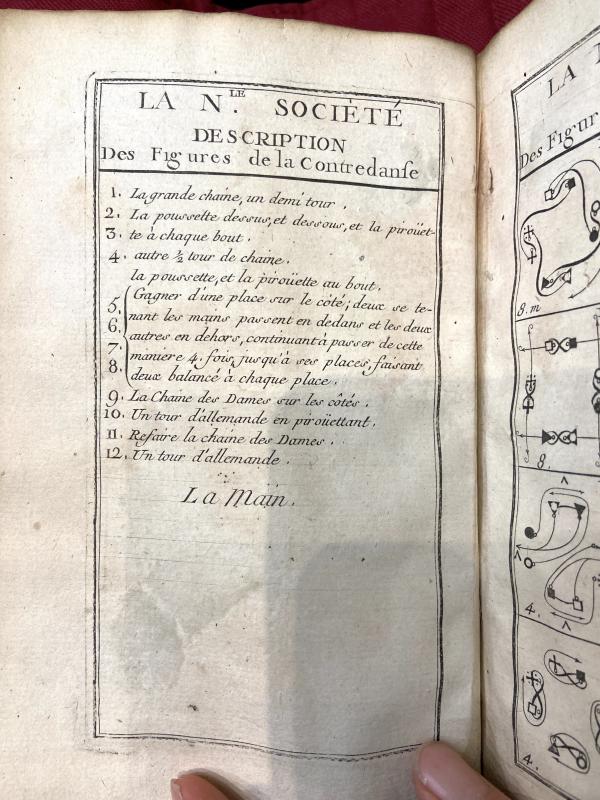 LA N.LE SOCIÉTÉ
DESCRIPTION
Des Figures de la Contredanse
1. La grande chaine, un demi tour.
2. La poussette dessus, et dessous, et la piroüet-
3. te à chaque bout.
4. autre ½ tour de chaine.
la poussette, et la piroüette au bout.
5. Gagner d'une place sur le côté; deux se te-
nant les mains passent en dedans et les deux
6. autres en dehors, continuant à passer de cette
7. maniere 4. fois, jusqu'à ses places, faisant
8. deux balancé à chaque place.
9. La Chaine des Dames sur les côtés.
10. Un tour d'allemande en piroüettant.
11. Refaire la chaine des Dames.
12. Un tour d'allemande.
La Main.
LA N
Des Figur
8. m
8.
4.
4.